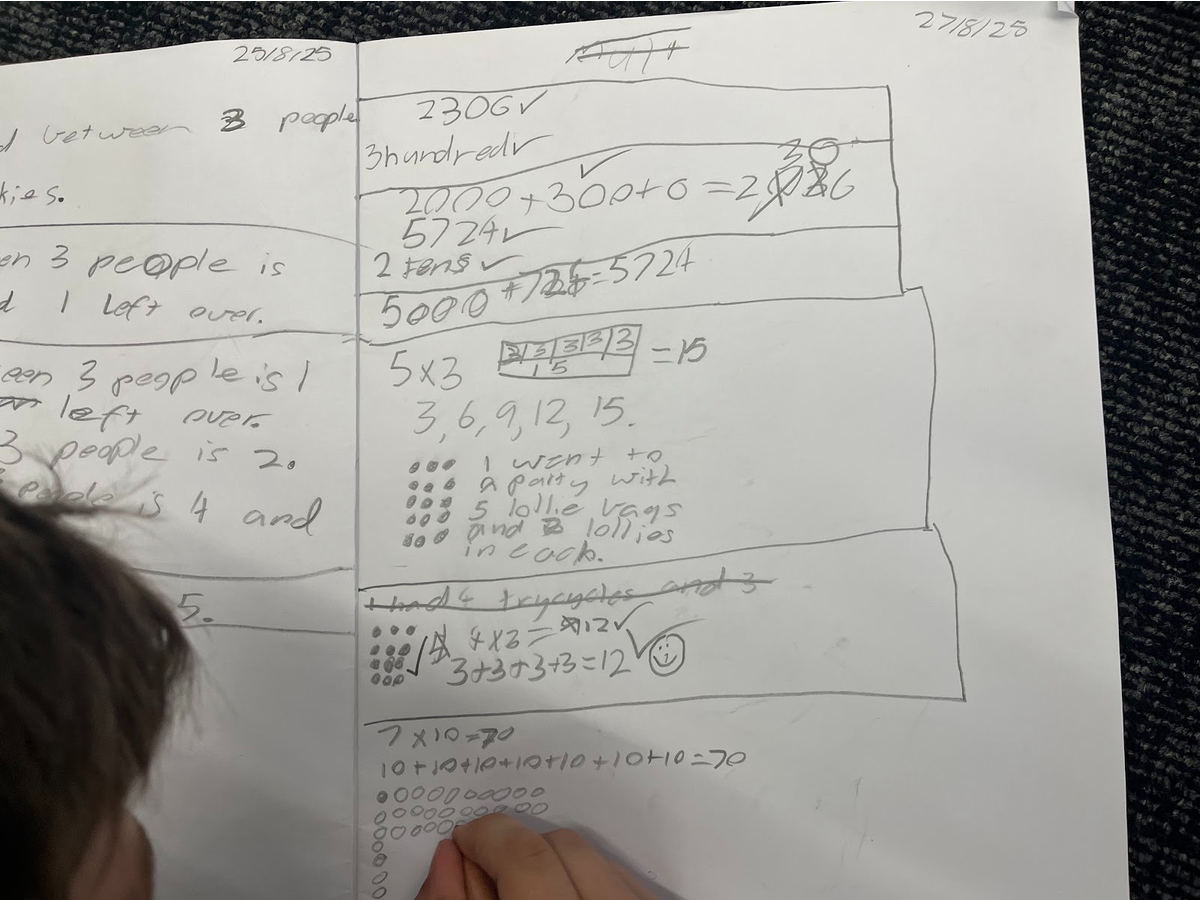 25/8/25
between 3 people
kies.
en 3 people is
d 1 left over.
een 3 people is 1
left over.
3 people is 2.
people is 4 and
5.
27/8/25
2306✓
3hundred✓
2000+300+6=2306
5724✓
2 tens✓
5000+724=5724
5x3 3 3 3 3 3 =15
15
3, 6, 9, 12, 15.
I went to
a party with
5 lollie bags
and 3 lollies
in each.
I had 4 trycycles and 3
4x3=12✓
3+3+3+3=12
7x10=70
10+10+10+10+10+10+10=70